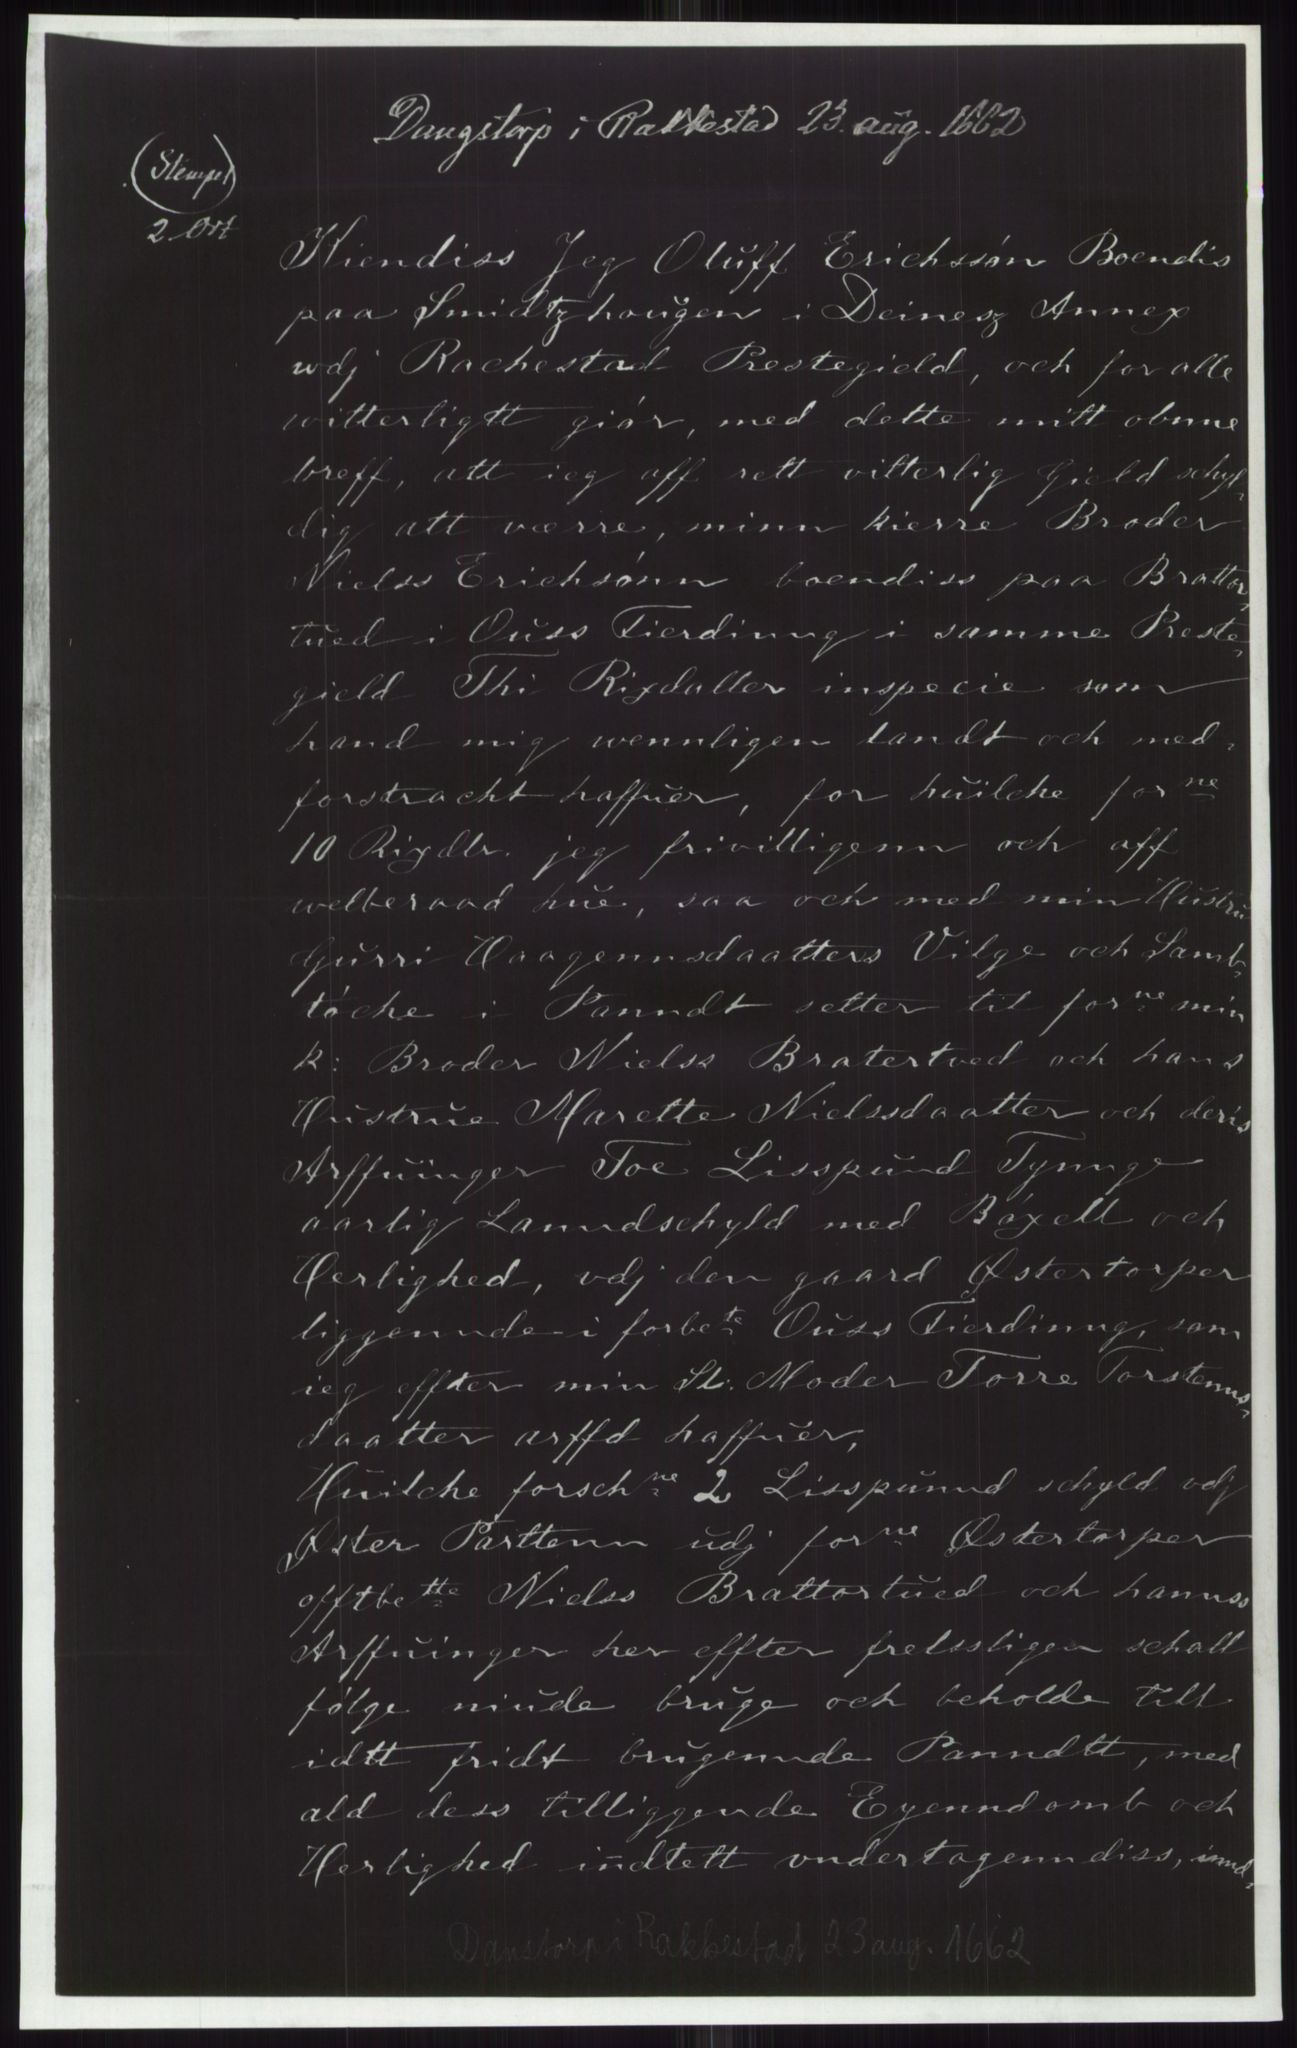 Dangstorp i Rakkestad 23 aug. 1662
(Stempel)
2. Ort
Kiendiss Jeg Oluff Erichssøn Boendis
paa Smidtzhougen i Deinesz Annex
wdj Rachestad Prestegield, och for alle
witterligtt giør, med dette mitt obnne
breff, att ieg aff rett vitterlig Gield schyl-
dig att værre, minn kierre Broder
Nielss Erichsønn boendiss paa Brattor-
tued i Ouss Fierdinng i samme Preste-
gield Thi Rixdaller inspecie som
hand mig wennligen landt och med-
forstracht haffuer, for huilche forne
10 Rixdlr. jeg frivilligenn och aff
welberaad hue, saa och med min Hustru
Gurri Haagennsdaatters Vilge och Samb-
tøche i Panndt setter til forne min
k: Broder Nielss Bratertved och hans
Hustrue Marette Nielssdaatter och deris
Arffuinger Toe Lisspund Tynnge
aarlig Lanndschyld med Bøxell och
Herlighed, vdj den gaard Østertorper
liggennde i forbete Ouss Fierdinng, som
ieg effter min Sl. Moder Torre Torstenns-
daatter arffd haffuer,
Huilche forschne 2 Lisspunnd schyld vdj
Øster Parttenn udj forne Østertorper
offtbette Nielss Brattortued och hannss
Arffuinger her effter frelssligen schall
følge niude bruge och beholde till
idtt fridt brugennde Panndtt, med
ald dess tilliggende Eyenndomb och
Herlighed indtett vndertagenndiss, innd-
Danstorp i Rakkestad 23 aug. 1662